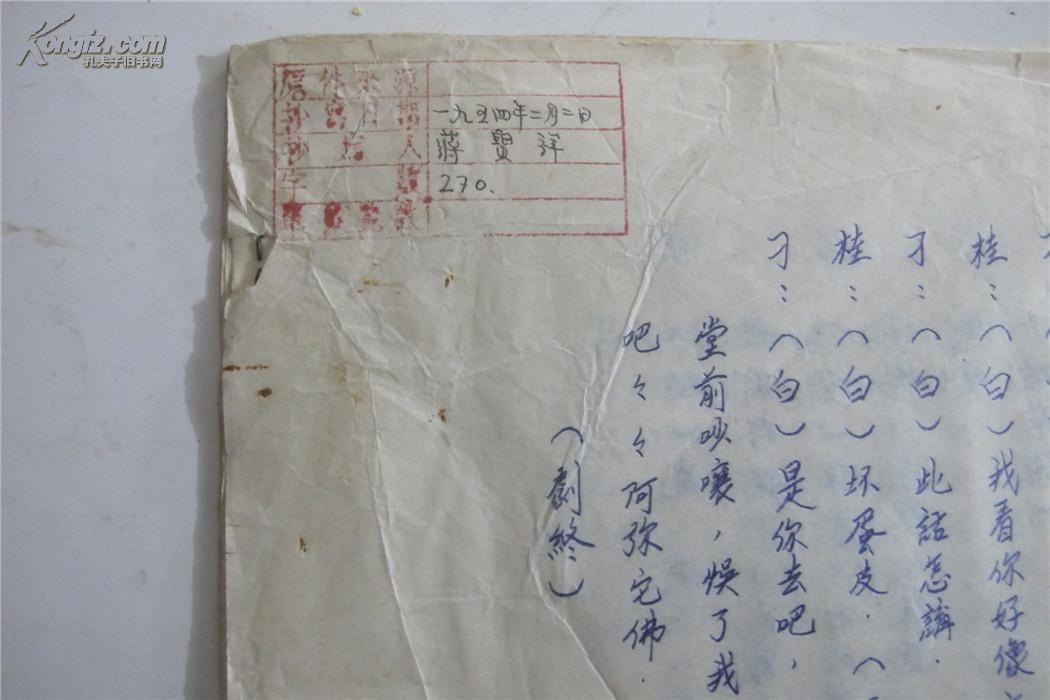 Kongfz.com
孔夫子旧书网
原件来源
抄写日期 一九五四年二月二日
抄写人 蒋
字数 270.
桂：（白）我看你好像
刁：（白）此話怎講.
桂：（白）坏蛋皮.（
刁：（白）是你去吧，
堂前吵嚷，悞了我
吧々々阿弥它佛.
（劇終）